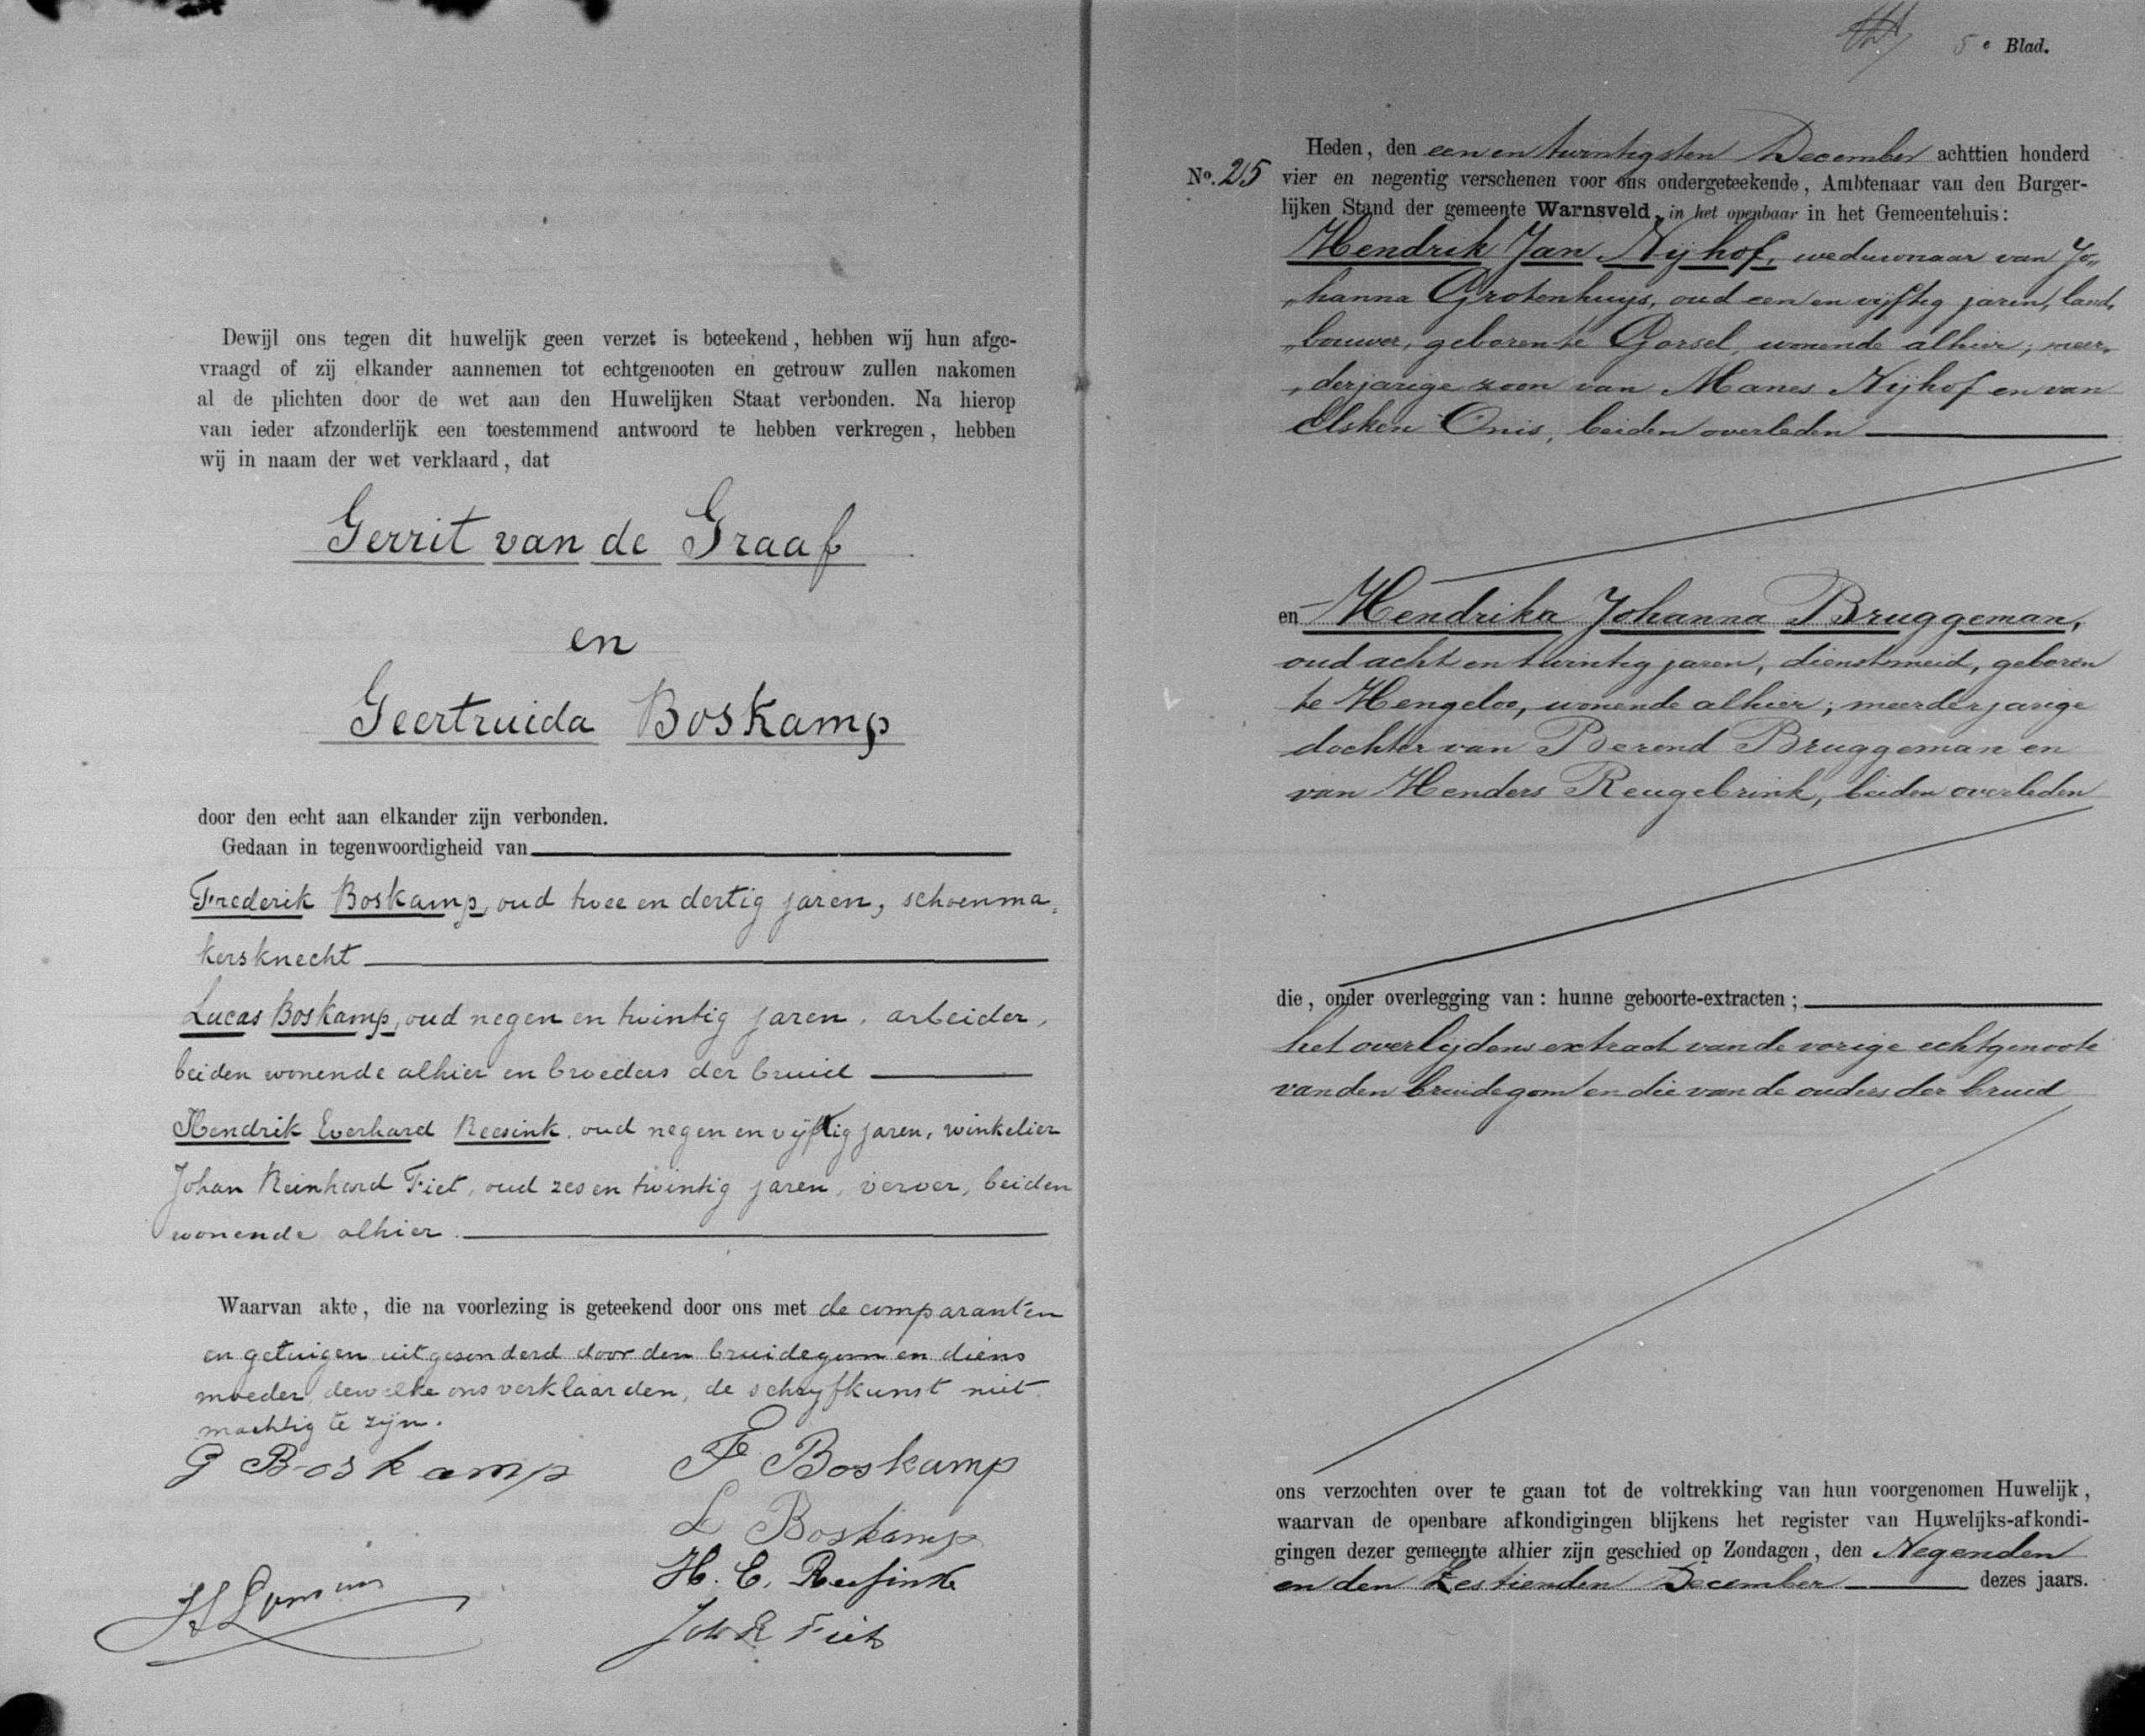 Dewijl ons tegen dit huwelijk geen verzet is beteekend, hebben wij hun afge-
vraagd of zij elkander aannemen tot echtgenooten en getrouw zullen nakomen
al de plichten door de wet aan den Huwelijken Staat verbonden. Na hierop
van ieder afzonderlijk een toestemmend antwoord te hebben verkregen, hebben
wij in naam der wet verklaard, dat
Gerrit van de Graaf
en
Geertruida Boskamp
door den echt aan elkander zijn verbonden.
Gedaan in tegenwoordigheid van
Frederik Boskamp, oud twee en dertig jaren, schoenma=
kersknecht
Lucas Boskamp, oud negen en twintig jaren, arbeider,
beiden wonende alhier en broeders der bruid
Hendrik Everhard Reesink, oud negen en vijftig jaren, winkelier
Johan Reinhard Fiet, oud zes en twintig jaren, verver, beiden
wonende alhier.
Waarvan akte, die na voorlezing is geteekend door ons met de comparanten
en getuigen uitgesonderd door den bruidegom en diens
moeder, dewelke ons verklaarden, de schryfkunst niet
machtig te zijn.
G Boskamp
F Boskamp
L Boskamp
H. E. Reesink
Joh R Fiet
5e Blad.
Heden, den een en twintigsten December achttien honderd
No. 25 vier en negentig verschenen voor ons ondergeteekende, Ambtenaar van den Burger-
lijken Stand der gemeente Warnsveld, in het openbaar in het Gemeentehuis:
Hendrik Jan Nijhof, weduwnaar van Jo„
„hanna Grotenhuijs, oud een en vijftig jaren, land„
„bouwer, geboren te Gorsel, wonende alhier; meer„
„derjarige zoon van Manes Nijhof en van
Elsken Onis, beiden overleden
en Hendrika Johanna Bruggeman,
oud acht en twintig jaren, dienstmeid, geboren
te Hengeloo, wonende alhier; meerderjarige
dochter van Berend Bruggeman en
van Henders Reugebrink, beiden overleden
die, onder overlegging van: hunne geboorte-extracten;
het overlijdens extract van de vorige echtgenoote
van den bruidegom en die van de ouders der bruid
ons verzochten over te gaan tot de voltrekking van hun voorgenomen Huwelijk,
waarvan de openbare afkondigingen blijkens het register van Huwelijks-afkondi-
gingen dezer gemeente alhier zijn geschied op Zondagen, den Negenden
en den Zestienden December dezes jaars.